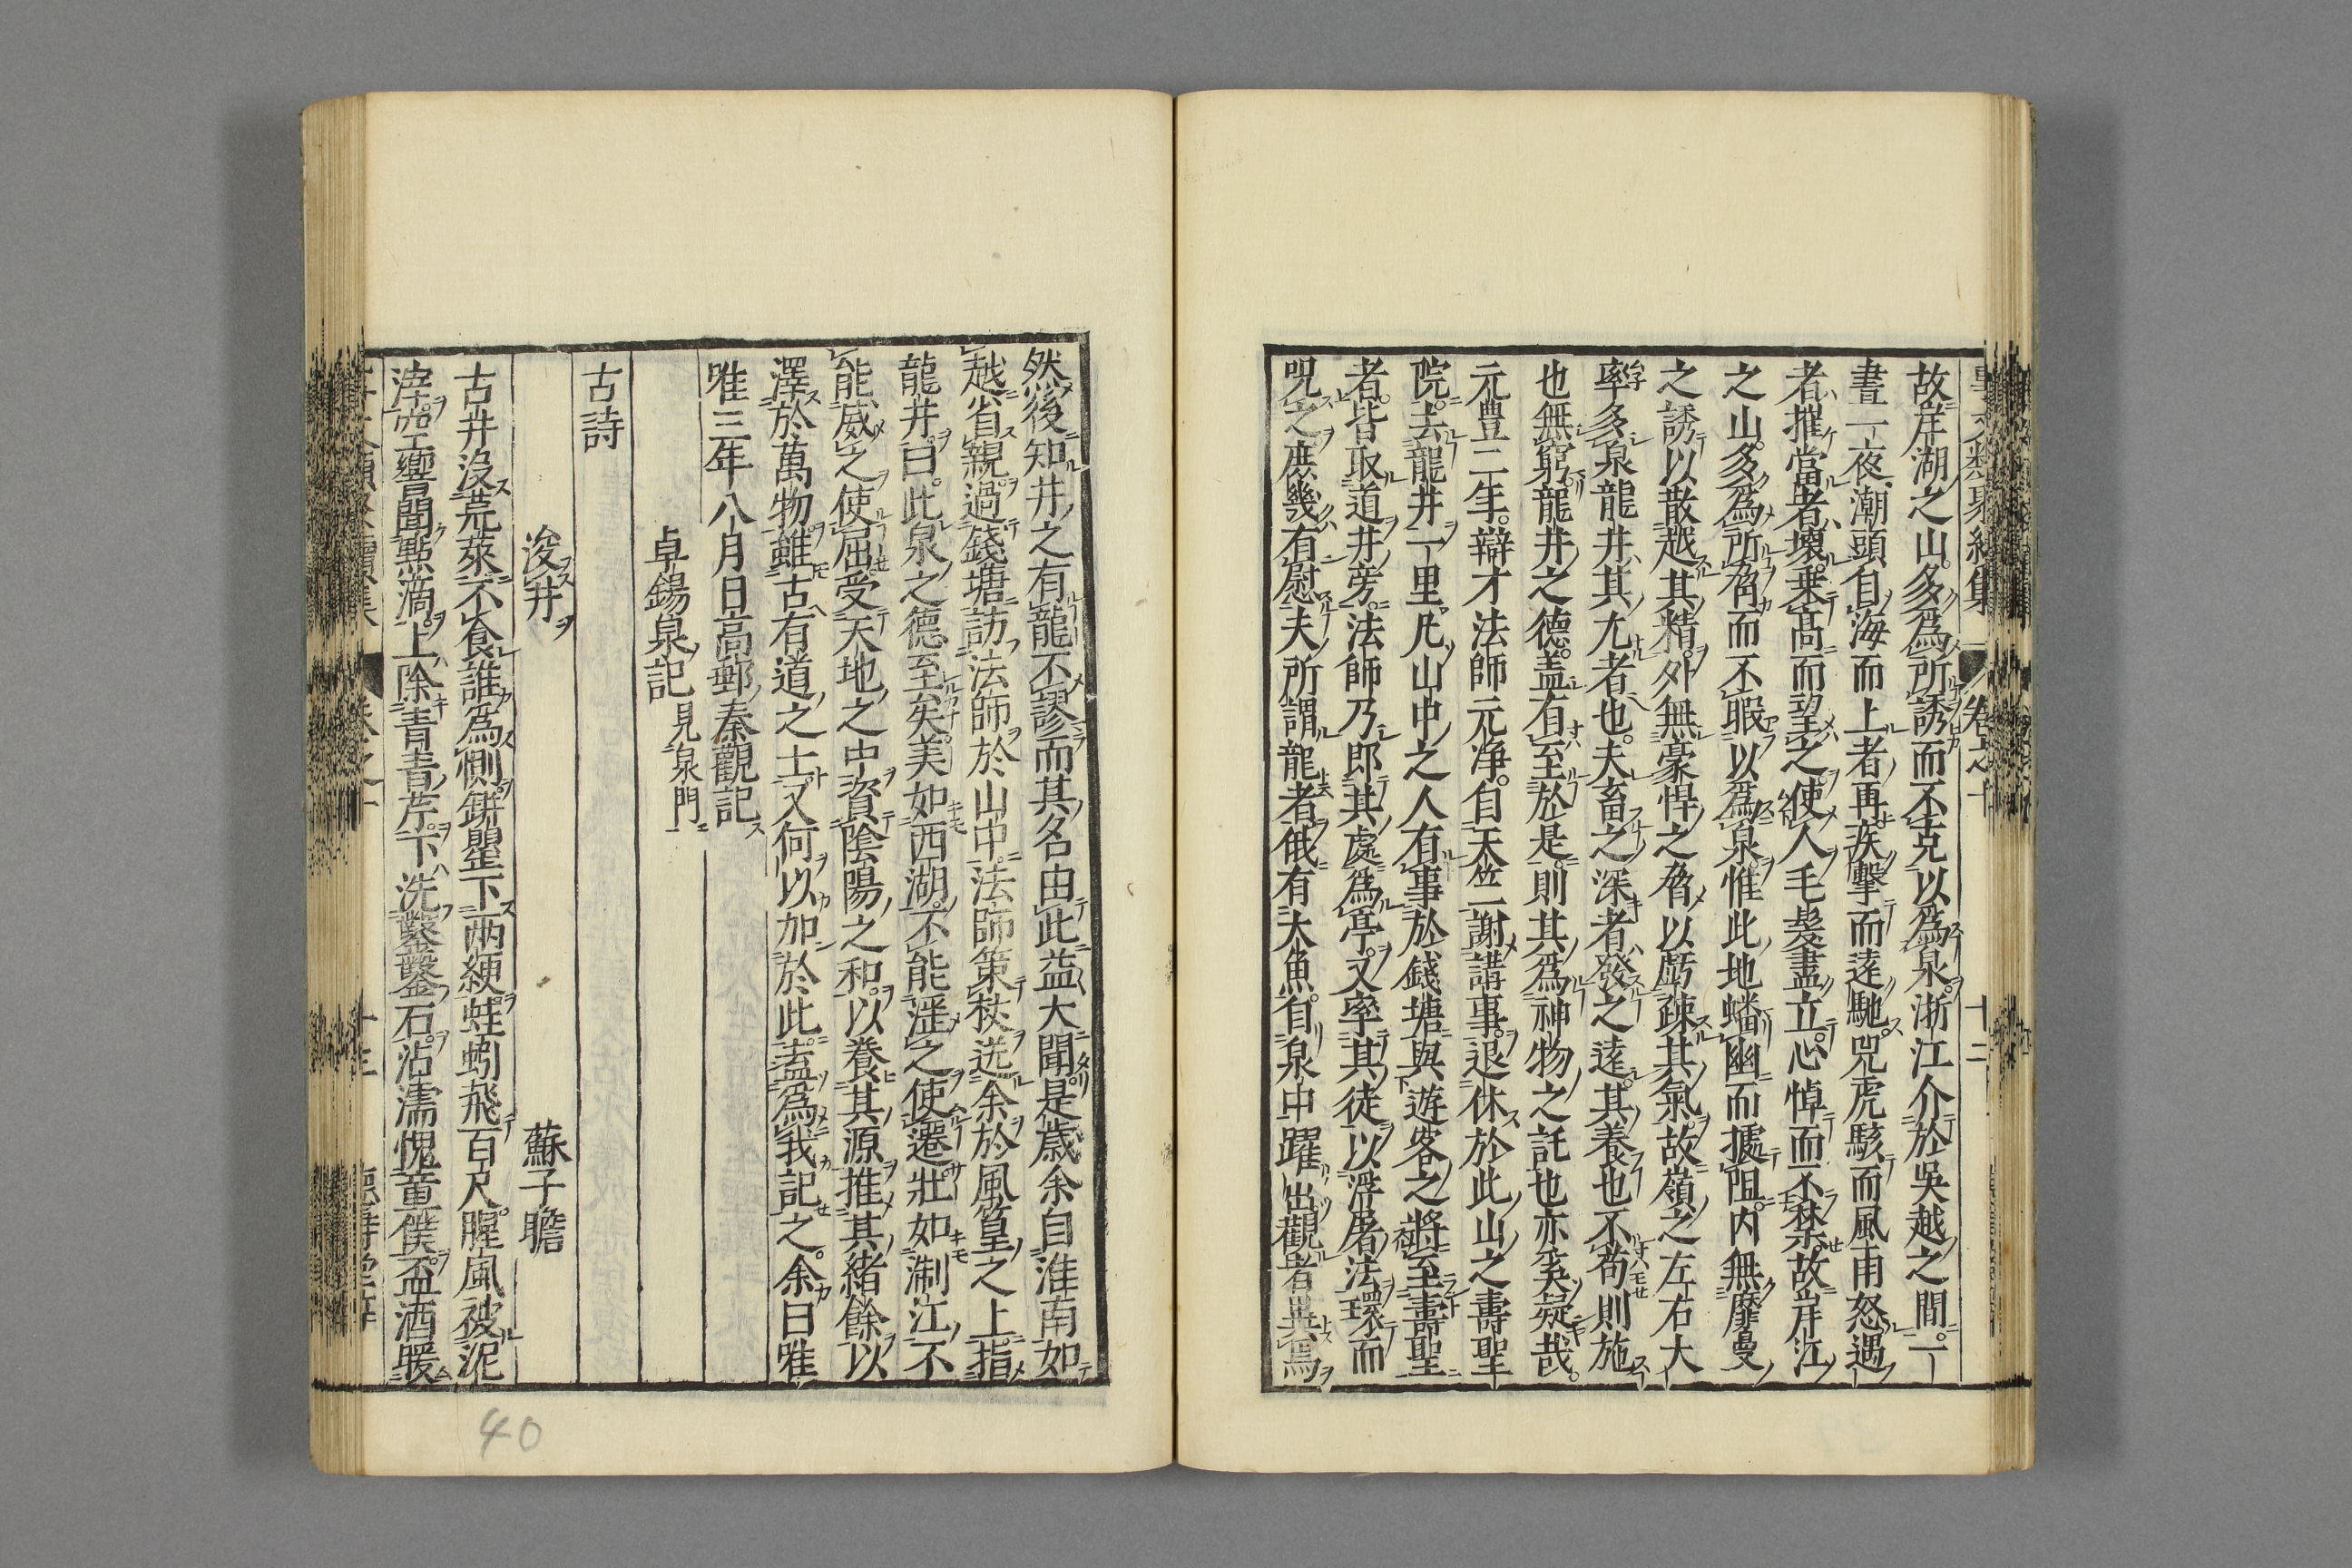 故岸湖之山多爲所誘而不克以爲泉浙江介於吳越之間一
晝一夜潮頭自海而上者再疾擊而遠馳兕虎駭而風雨怒遇
者摧當者壞乗髙而望之使人毛髮盡立心悼而不禁故岸江
之山多爲所脅而不暇以爲泉惟此地蟠幽而據阻内無靡曼
之誘以散越其精外無豪悍之脅以虧疎其氣故嶺之左右大
率多泉龍井其尤者也夫畜之深者發之遠其養也不苟則施
也無窮龍井之德盖有至於是則其爲神物之託也亦奚疑哉
元豊二年辯才法師元浄自天竺謝講事退休於此山之壽聖
院去龍井一里凡山中之人有事於錢塘與遊客之將至壽聖
者皆取道井旁法師乃即其處爲亭又率其徒以浮屠法環而
呪之庶幾有慰夫所謂龍者俄有大魚自泉中躍出觀者異焉
然後知井之有龍不謬而其名由此益大聞是歳余自淮南如
越省親過錢塘訪法師於山中法師策杖送余於風篁之上指
龍井曰此泉之德至矣美如西湖不能淫之使遷壯如淛江不
能威之使屈受天地之中資陰陽之和以養其源推其緒餘以
澤於萬物雖古有道之士又何以加於此盍爲我記之余曰唯
唯三年八月日高郵秦觀記
卓錫泉記 見泉門
古詩
浚井 蘇子瞻
古井沒荒萊不食誰爲惻缾罌下兩綆蛙蚓飛百尺腥風被泥
滓空響聞點滴上除青青芹下洗鑿鑿石沾濡愧童僕盃酒暖
40